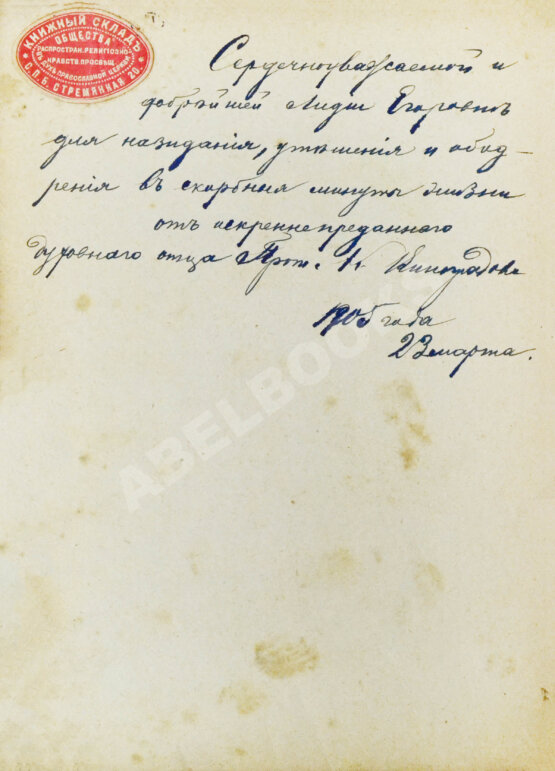 КНИЖНЫЙ СКЛАДЪ
ОБЩЕСТВА
РАСПРОСТРАН. РЕЛИГІОЗНО-
НРАВСТВ. ПРОСВѢЩ.
ВЪ ДУХѢ ПРАВОСЛАВНОЙ ЦЕРКВИ
С.П.Б. СТРЕМЯННАЯ 20.
Сердечноуважаемой и
добрѣйшей Лидіи Егоровнѣ
для назиданія, утѣшенія и обод-
ренія въ скорбныя минуты жизни
отъ искренне преданнаго
духовнаго отца Прот. Виноградова
1905 года
23 марта.
ABELBOOKS